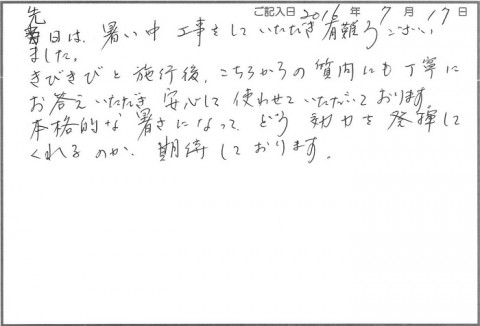 ご記入日 2016 年 7 月 17 日
先日は、暑い中 工事をしていただき 有難うござい
ました。
きびきびと 施行後、こちらからの 質問にも 丁寧に
お答えいただき 安心して 使わせていただいております。
本格的な 暑さになって、どう 効力を 発揮して
くれるのか、期待しております。